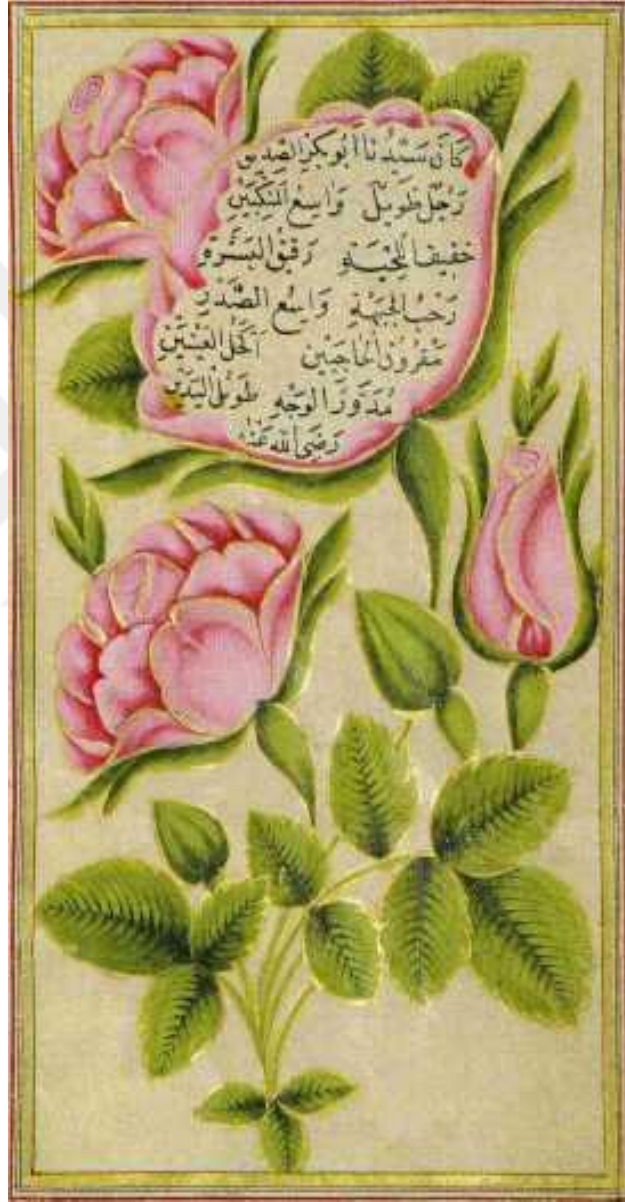 كَانَ سَيِّدُنَا اَبُو بَكْرِ الصِّدِّيقِ
رَجُلٌ طَوِيلٌ وَاسِعُ الْمَنْكِبَيْنِ
خَفِيفُ اللِّحْيَةِ رَقِيقُ الْبَشَرَةِ
رَحْبُ الْجَبْهَةِ وَاسِعُ الصَّدْرِ
مَقْرُونُ الْحَاجِبَيْنِ اَكْحَلُ الْعَيْنَيْنِ
مُدَوَّرُ الْوَجْهِ طَوِيلُ الْيَدَيْنِ
رَضِيَ اللّٰهُ عَنْهُ